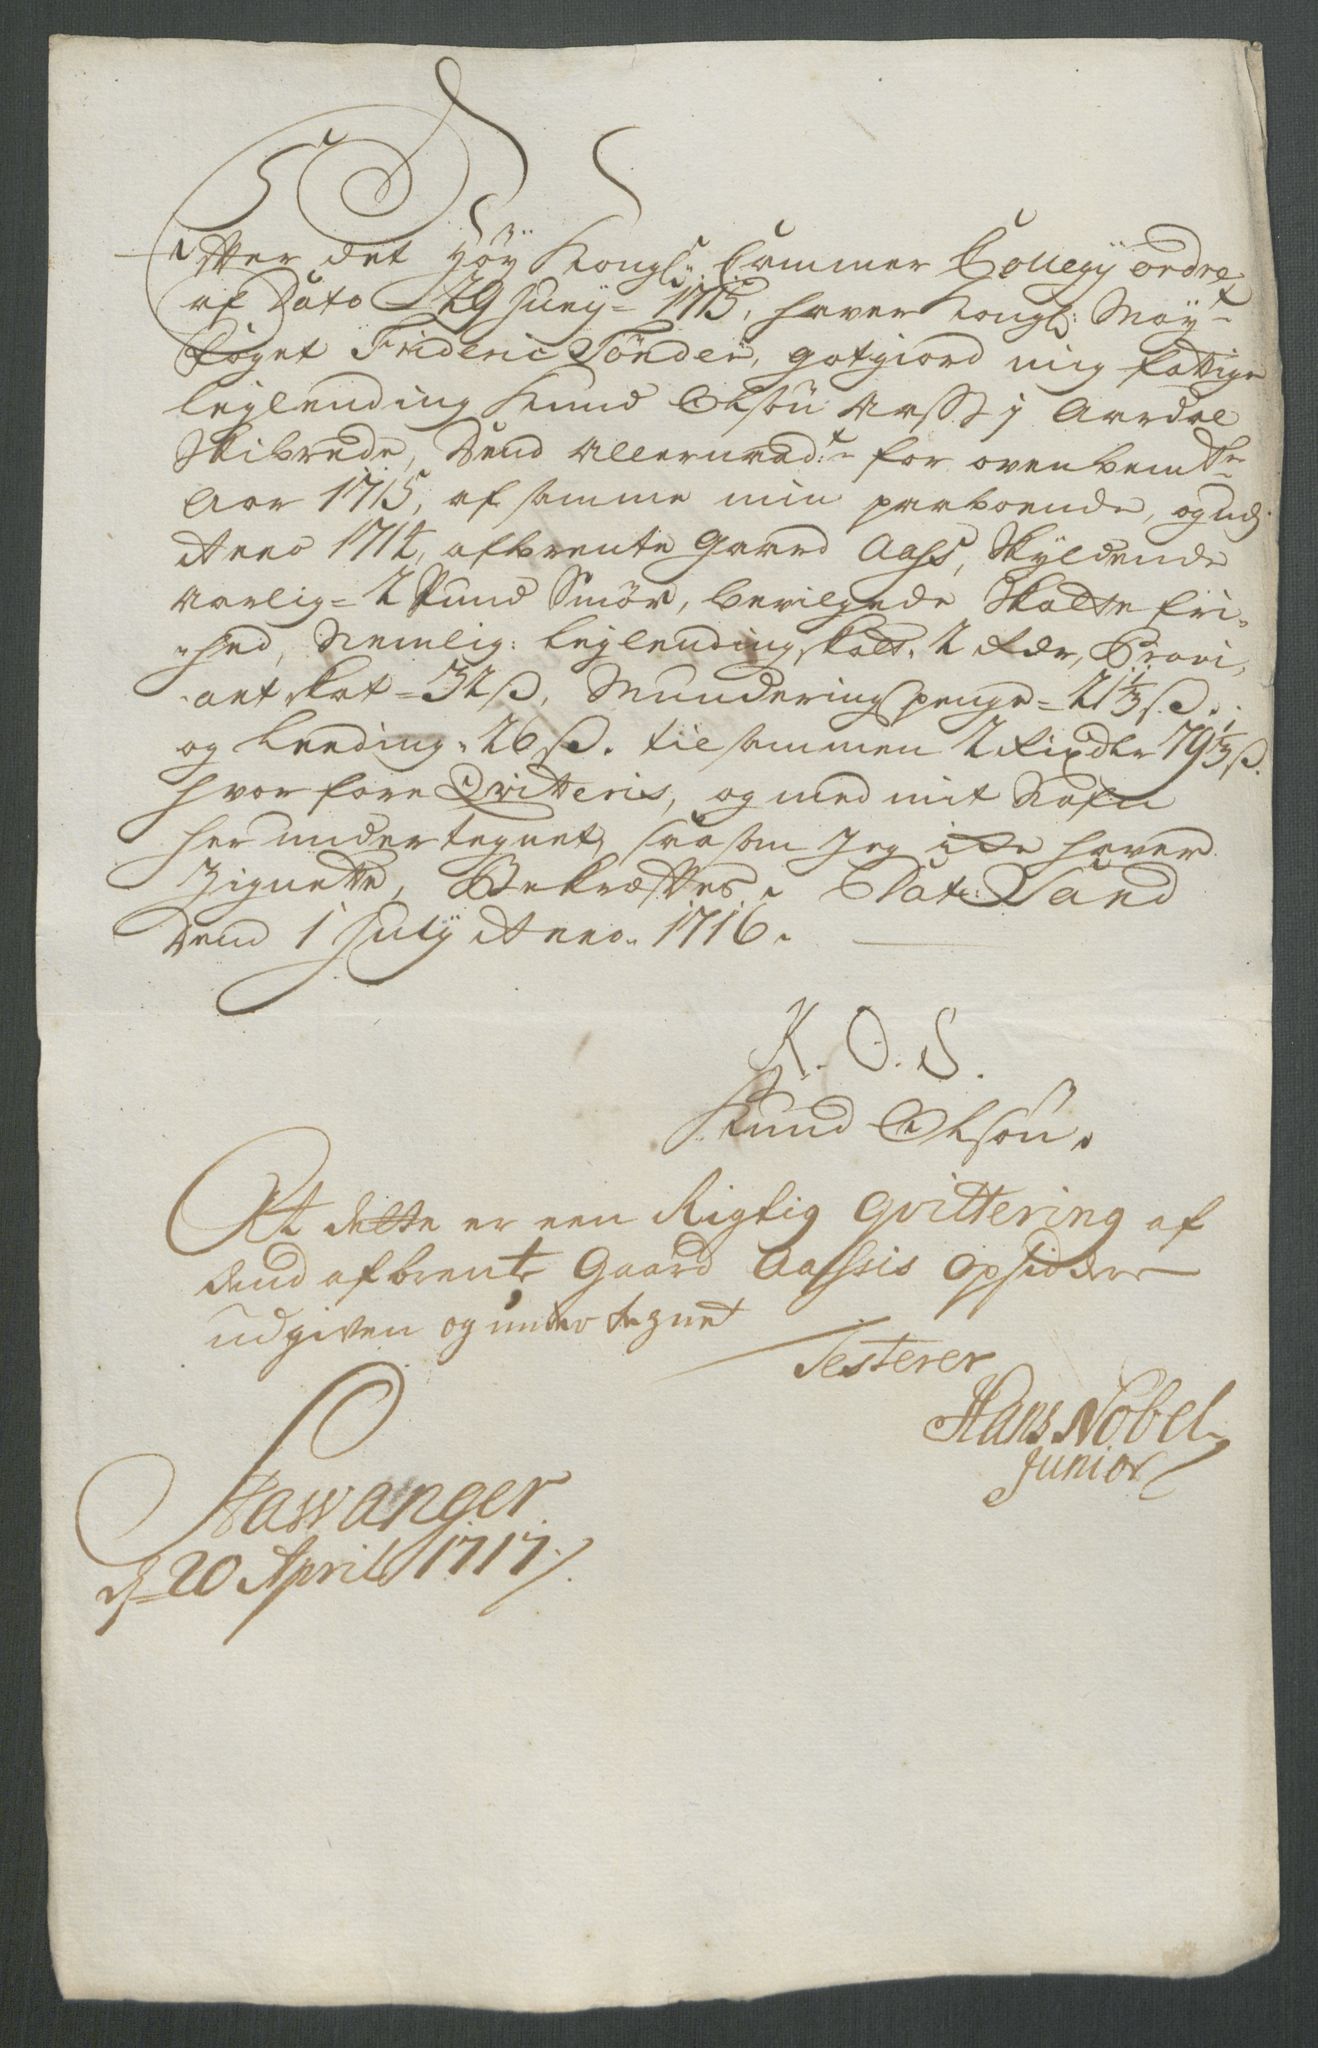 Effter det Höy Kongl: Cammer Collegy ordre
af Dato 29 Juny= 1715, haver Kongl: May:t
foget Frideric Tönder, gotgiord mig fattige
Leylending Knud Olsön Aass i Aardal
Skibrede, Dend Allernaad:te for ovenbemte
Aar 1715, af samme min paaboende, og udj
Anno 1714, afbrente Gaard Aass, Skyldende
Aarlig= 2 Pund Smör, bevilgede Skatte fri-
-hed, Nemlig: Leylending skatt. 2 Rdr, Provi-
-ant skat= 32 ß, Munderings penge= 21⅓ ß.
og Leeding= 26 ß. tilsammen 2 Rixdlr 79⅓ ß.
hvorfore Qvitteris, og med mit Nafn
her undertegnet, saasom Jeg icke haver
Zignette, Bekræfftes. Dat: Sand
Dend 1 July Anno 1716.
K. O. S.
Knud Olsön.
At dette er een Rigtig qvittering af
dend afbrente Gaard Aassis opsidder
udgiven og undertegnet
Testerer
Hans Nobel
Junior
Stawanger
d= 20 April 1717